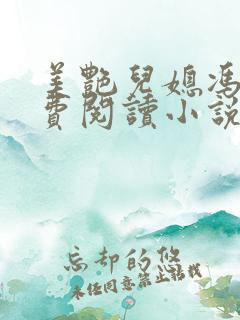 美艷兒媳馮
費閱讀小說
忘却的悠
未经同意禁止转载